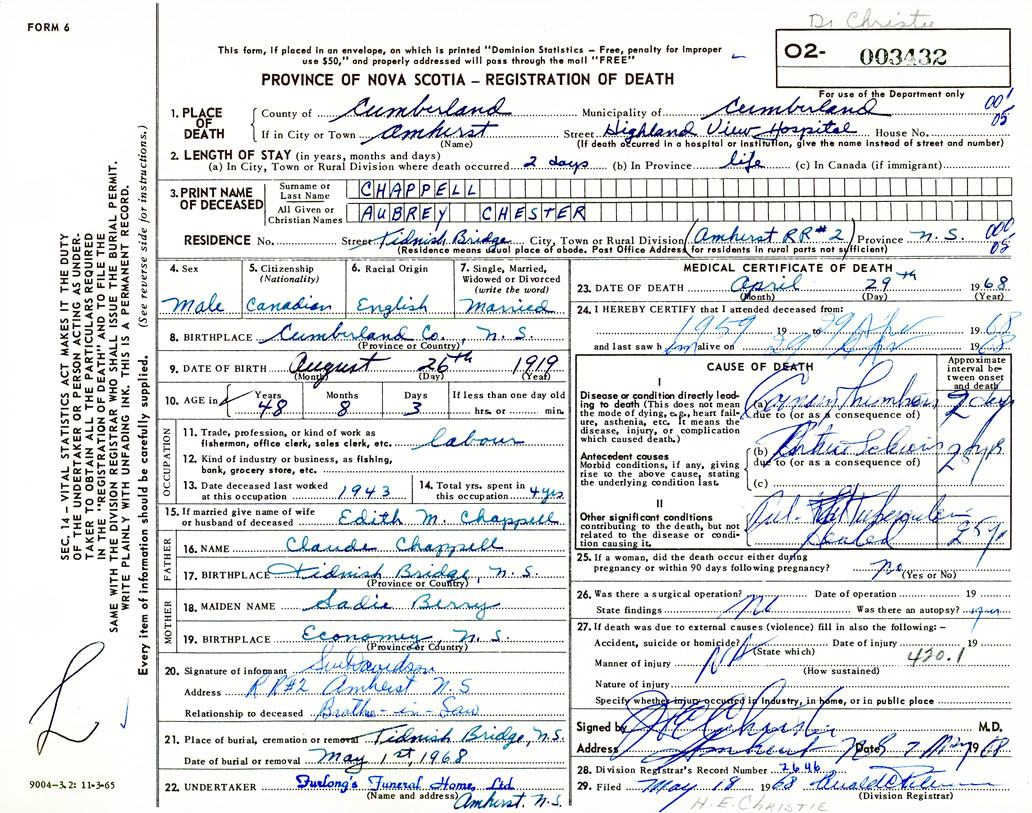 FORM 6
Dr Christie
This form, if placed in an envelope, on which is printed "Dominion Statistics – Free, penalty for improper
use $50," and properly addressed will pass through the mail "FREE"
PROVINCE OF NOVA SCOTIA – REGISTRATION OF DEATH
O2- 003432
For use of the Department only
1. PLACE OF DEATH County of Cumberland Municipality of Cumberland 00'
If in City or Town Amherst Street Highland View Hospital House No. 05
(Name) (If death occurred in a hospital or institution, give the name instead of street and number)
2. LENGTH OF STAY (in years, months and days)
(a) In City, Town or Rural Division where death occurred 2 days (b) In Province life (c) In Canada (if immigrant)
3. PRINT NAME OF DECEASED Surname or Last Name CHAPPELL
All Given or Christian Names AUBREY CHESTER
RESIDENCE No. Street Tidnish Bridge City, Town or Rural Division (Amherst RR#2) Province N.S. 000,
(Residence means usual place of abode. Post Office Address for residents in rural parts not sufficient) 05
4. Sex Male
5. Citizenship (Nationality) Canadian
6. Racial Origin English
7. Single, Married, Widowed or Divorced (write the word) Married
8. BIRTHPLACE Cumberland Co., N.S.
(Province or Country)
9. DATE OF BIRTH August 26th 1919
(Month) (Day) (Year)
10. AGE in Years 48 Months 8 Days 3 If less than one day old hrs. or min.
OCCUPATION
11. Trade, profession, or kind of work as
fisherman, office clerk, sales clerk, etc. labour
12. Kind of industry or business, as fishing,
bank, grocery store, etc.
13. Date deceased last worked at this occupation 1943
14. Total yrs. spent in this occupation 4 yrs
15. If married give name of wife
or husband of deceased Edith M. Chappell
FATHER
16. NAME Claude Chappell
17. BIRTHPLACE Tidnish Bridge, N.S.
(Province or Country)
MOTHER
18. MAIDEN NAME Sadie Berry
19. BIRTHPLACE Economy, N.S.
(Province or Country)
20. Signature of informant
Address RR#2 Amherst N.S
Relationship to deceased Brother-in-Law
21. Place of burial, cremation or removal Tidnish Bridge, N.S.
Date of burial or removal May 1st, 1968
22. UNDERTAKER Furlong's Funeral Home, Ltd
(Name and address) Amherst, N.S.
MEDICAL CERTIFICATE OF DEATH
23. DATE OF DEATH April 29th 1968
(Month) (Day) (Year)
24. I HEREBY CERTIFY that I attended deceased from:
1959 19 to 29 Apr 1968
and last saw him alive on 29 Apr 1968
CAUSE OF DEATH
Approximate interval between onset and death
I
Disease or condition directly leading to death (This does not mean the mode of dying, e.g., heart failure, asthenia, etc. It means the disease, injury, or complication which caused death.)
(a) 2 days
due to (or as a consequence of)
Antecedent causes
Morbid conditions, if any, giving rise to the above cause, stating the underlying condition last.
(b)
due to (or as a consequence of)
(c)
II
Other significant conditions
contributing to the death, but not related to the disease or condition causing it.
Healed
25. If a woman, did the death occur either during
pregnancy or within 90 days following pregnancy? no
(Yes or No)
26. Was there a surgical operation? Date of operation 19
State findings No Was there an autopsy?
27. If death was due to external causes (violence) fill in also the following: –
Accident, suicide or homicide? Date of injury 19
(State which) 420.1
Manner of injury
(How sustained)
Nature of injury
Specify whether injury occurred in industry, in home, or in public place
Signed by M.D.
Address Amherst N.S Date 7 May 1968
28. Division Registrar's Record Number 2646
29. Filed May 18 1968
(Division Registrar)
H.E. CHRISTIE
SEC. 14 – VITAL STATISTICS ACT MAKES IT THE DUTY
OF THE UNDERTAKER OR PERSON ACTING AS UNDER-
TAKER TO OBTAIN ALL THE PARTICULARS REQUIRED
IN THE "REGISTRATION OF DEATH" AND TO FILE THE
SAME WITH THE DIVISION REGISTRAR WHO SHALL ISSUE THE BURIAL PERMIT.
WRITE PLAINLY WITH UNFADING INK. THIS IS A PERMANENT RECORD.
Every item of information should be carefully supplied. (See reverse side for instructions.)
9004–3.2: 11-3-65